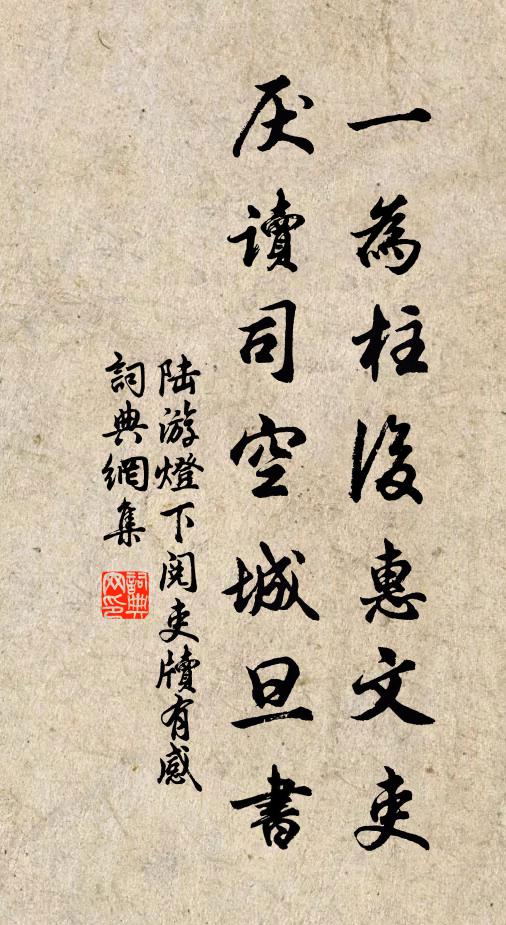 一為柱後惠文吏
厌讀司空城旦書
陆游燈下阅吏牘有感
詞典網集
詞典網印